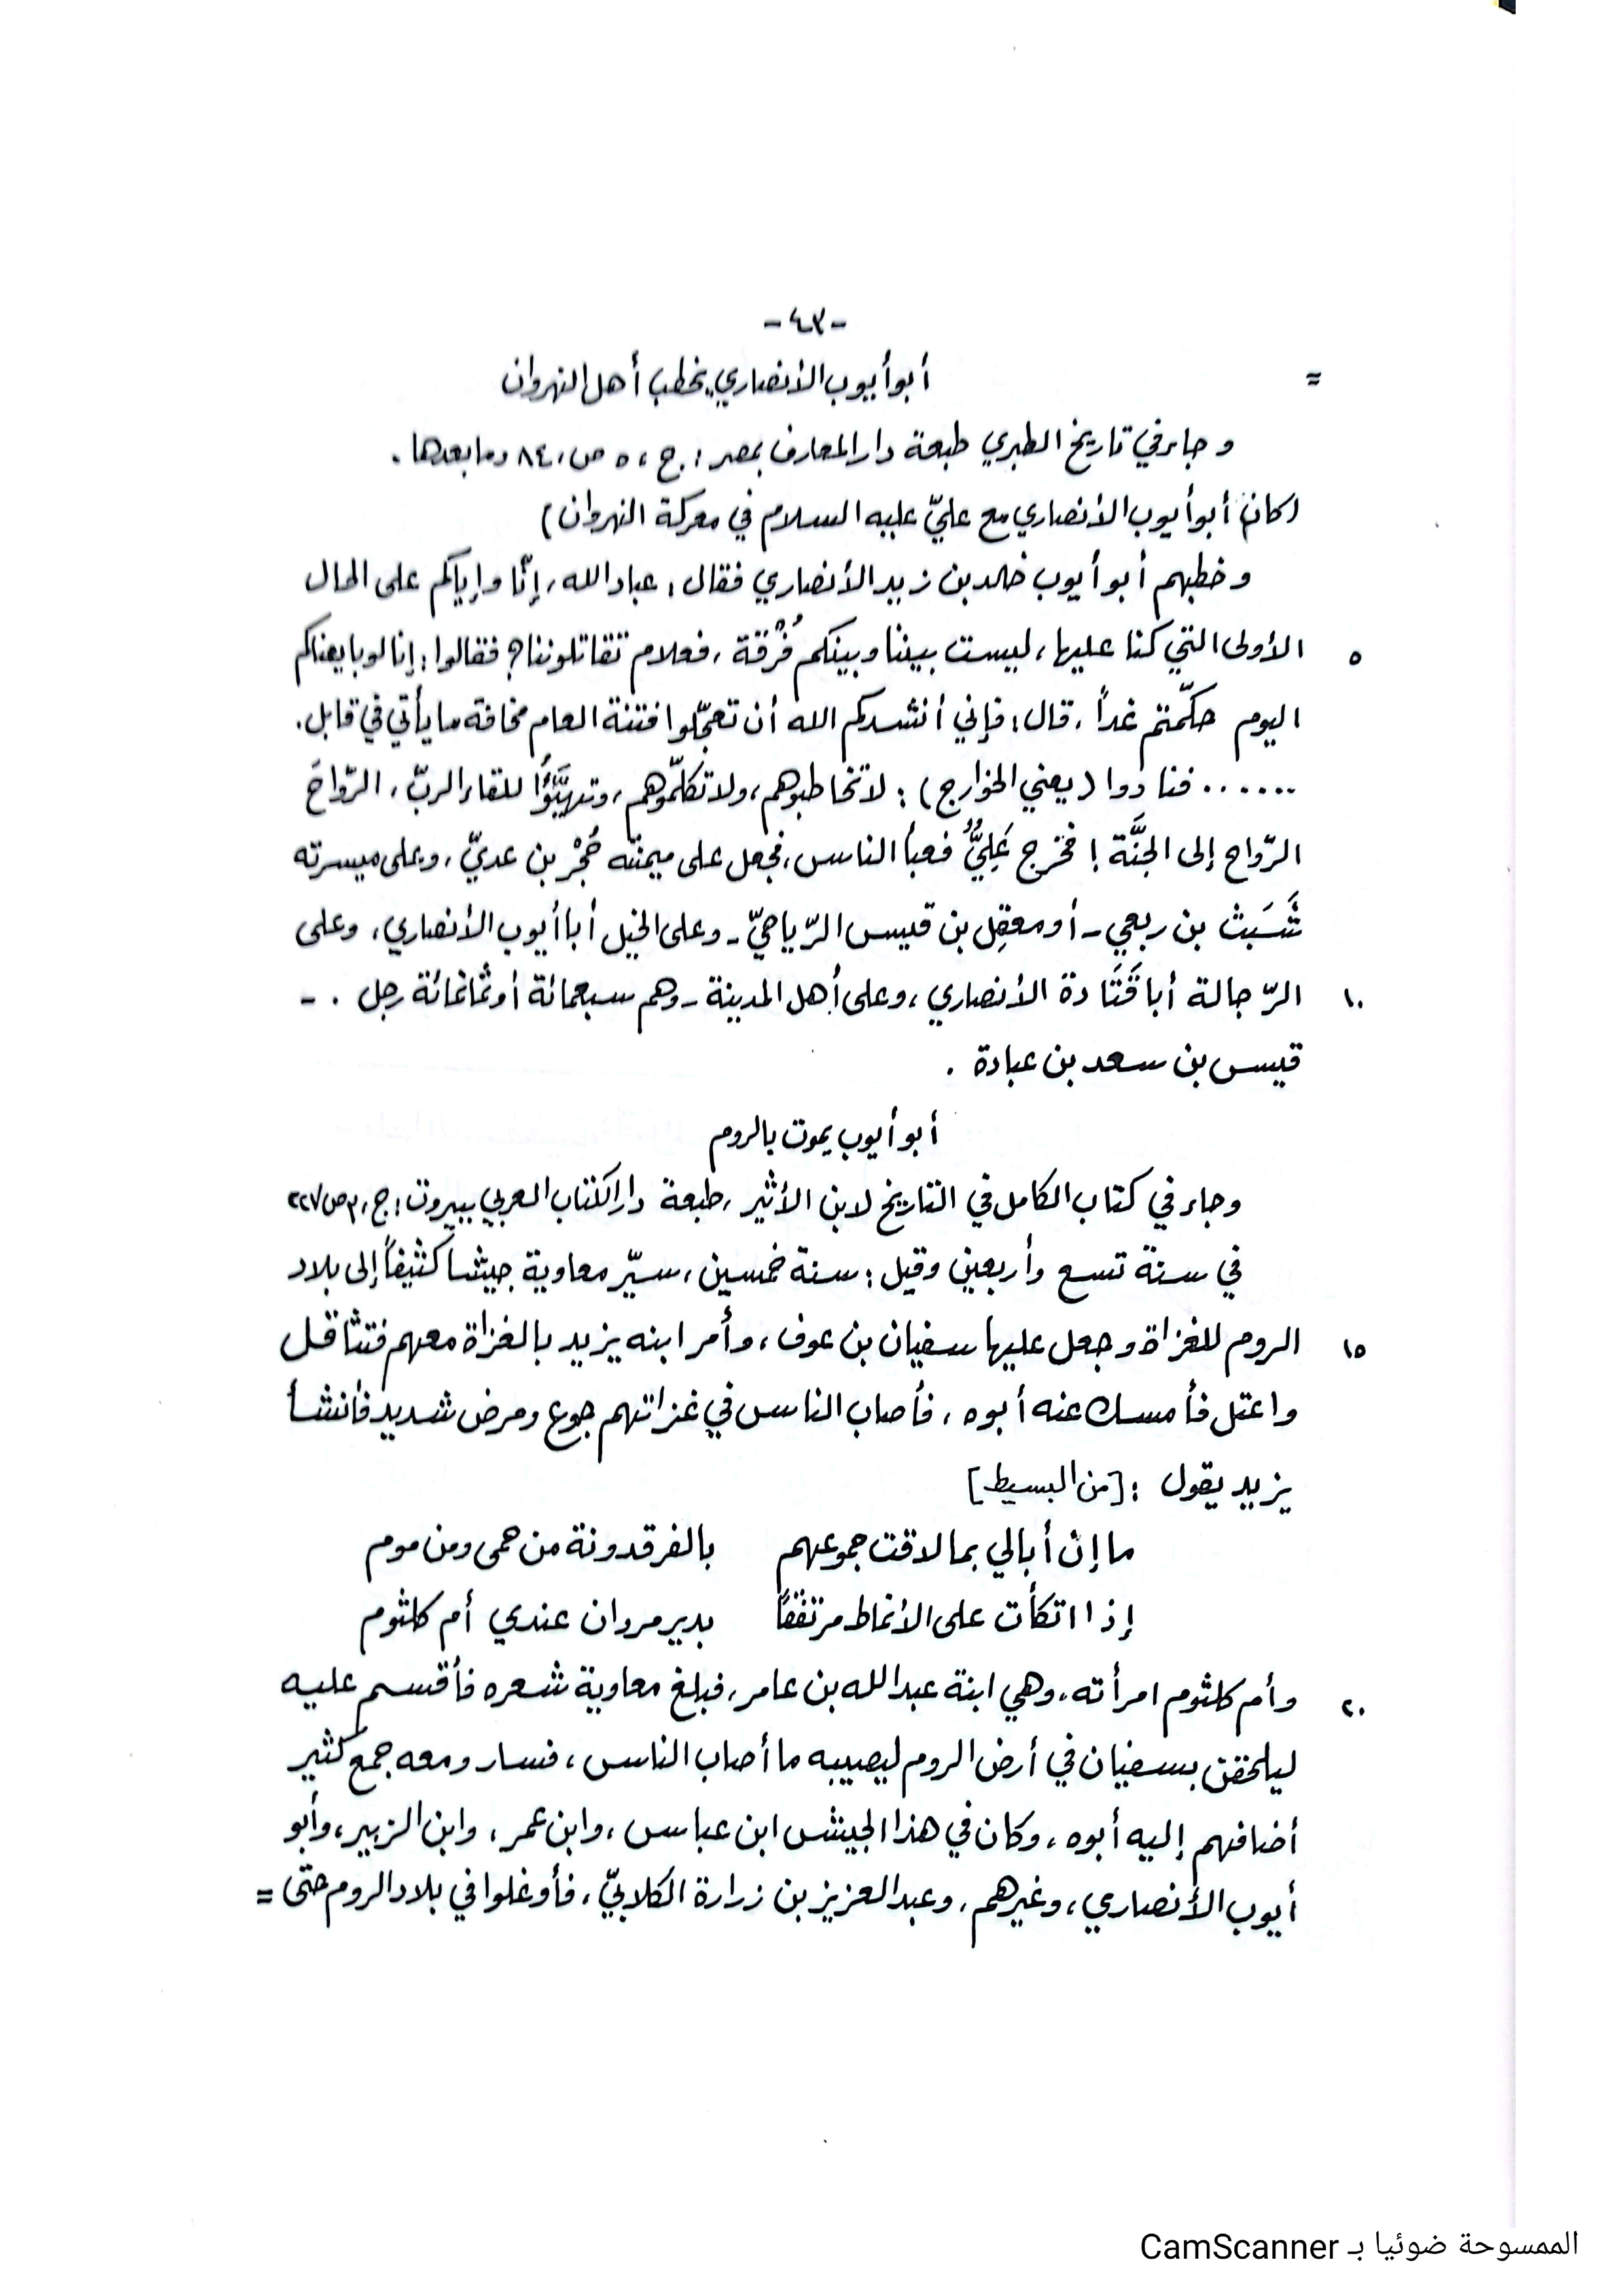 -٤٣-
= أبو أيوب الأنصاري يخطب أهل النهروان
وجاء في تاريخ الطبري طبعة دار المعارف بمصر: ج: ٥ ص: ٨٤ وما بعدها.
(كان أبو أيوب الأنصاري مع عليّ عليه السلام في معركة النهروان)
وخطبهم أبو أيوب خالد بن زيد الأنصاري فقال: عباد الله، إنّا وإياكم على الحال
٥ الأولى التي كنا عليها، ليست بيننا وبينكم فُرْقة، فعلام تقاتلوننا؟ فقالوا: إنا لو بايعناكم
اليوم حكّمتم غداً، قال: فإني أنشدكم الله أن تعجّلوا فتنة العام مخافة ما يأتي في قابل.
...... فنادوا (يعني الخوارج): لا تخاطبوهم، ولا تكلّموهم، وتهيَّؤُا للقاء الربّ، الرّواحَ
الرّواح إلى الجنَّة! فخرج عَلِيٌّ فعبأ الناس، فجعل على ميمنته حُجْر بن عديّ، وعلى ميسرته
شَبَث بن ربعي - أو معقِل بن قيس الرّياحيّ - وعلى الخيل أبا أيوب الأنصاري، وعلى
١٠ الرّجالة أبا قَتَادة الأنصاري، وعلى أهل المدينة - وهم سبعمائة أو ثمانمائة رجل . -
قيس بن سعد بن عبادة .
أبو أيوب يموت بالروم
وجاء في كتاب الكامل في التاريخ لابن الأثير، طبعة دار الكتاب العربي ببيروت: ج: ٣ ص ٢٢٧
في سنة تسع وأربعين وقيل: سنة خمسين، سيّر معاوية جيشا كثيفاً إلى بلاد
١٥ الروم للغزاة وجعل عليها سفيان بن عوف، وأمر ابنه يزيد بالغزاة معهم فتثاقل
واعتل فأمسك عنه أبوه، فأصاب الناس في غزاتهم جوع ومرض شديد فأنشأ
يزيد يقول: [من البسيط]
ما إن أبالي بما لاقت جموعهم بالفرقدونة من حمى ومن موم
إذا اتكأت على الأنماط مرتفقاً بدير مروان عندي أم كلثوم
٢٠ وأم كلثوم امرأته، وهي ابنة عبد الله بن عامر، فبلغ معاوية شعره فأقسم عليه
ليلحقن بسفيان في أرض الروم ليصيبه ما أصاب الناس، فسار ومعه جمع كثير
أضافهم إليه أبوه، وكان في هذا الجيش ابن عباس، وابن عمر، وابن الزبير، وأبو
أيوب الأنصاري، وغيرهم، وعبد العزيز بن زرارة الكلابيّ، فأوغلوا في بلاد الروم حتى =
الممسوحة ضوئيا بـ CamScanner